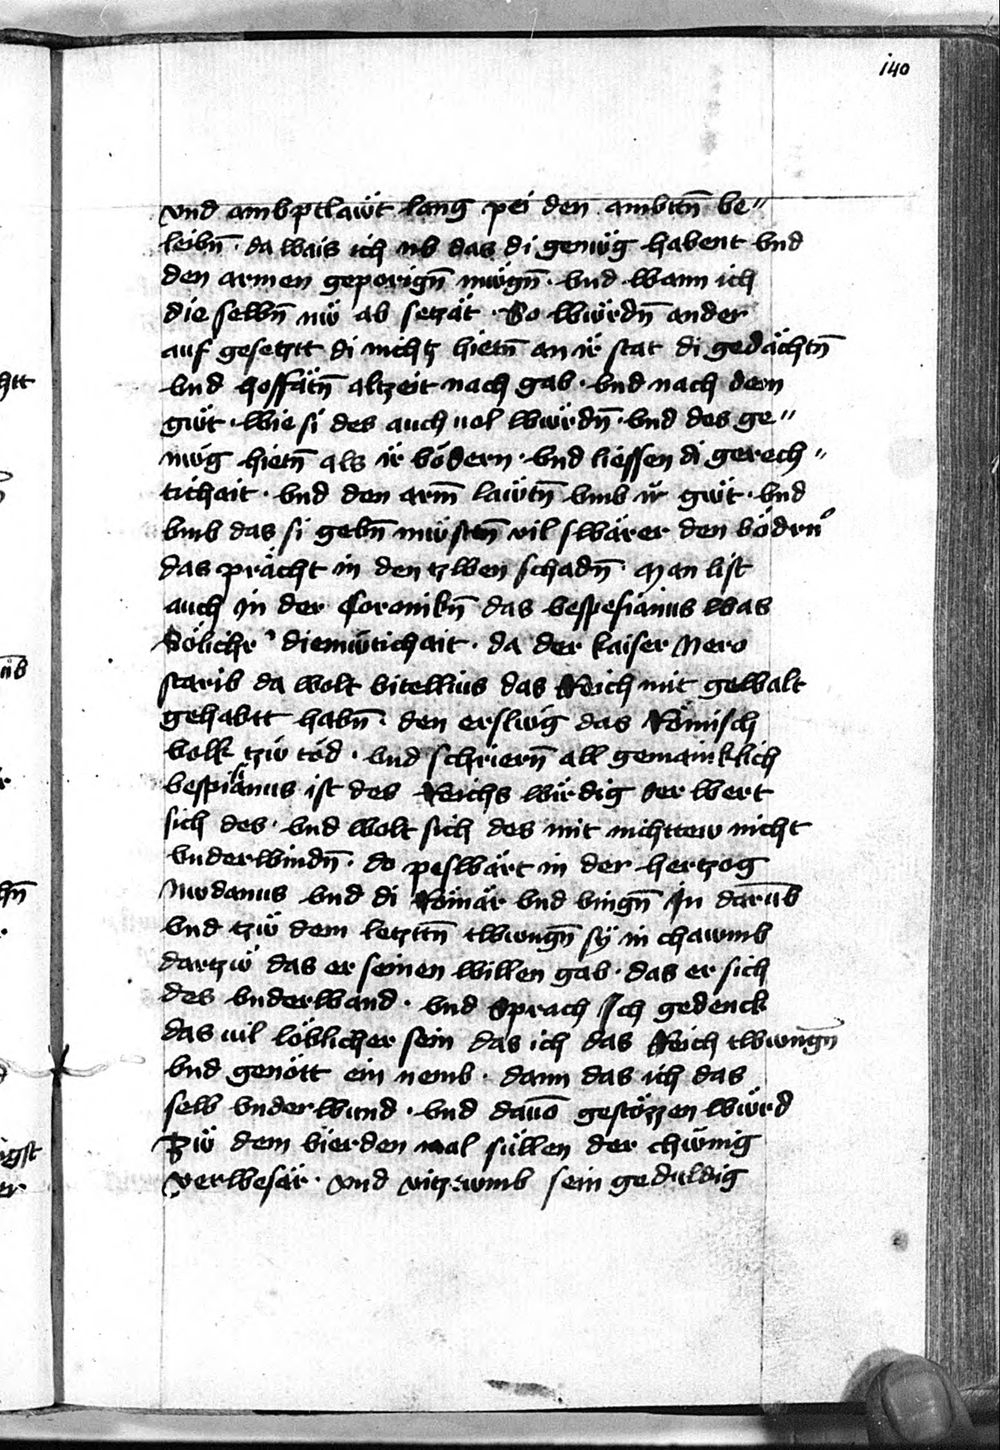 140
vnd ambptläwt lang pei den ambttn̄ be〃
leibn̄ · da wais ich vb das di genüg habent vnd
den armen geporign̄ mügn̄ · vnd wann ich
die selbn̄ nw̆ ab setzät · So würdn̄ ander
auf gesetztt di nichtz hietn̄ an ir stat di gedächtn̄
vnd hoffätn̄ altzeit nach gab · vnd nach dem
güt · wie si des auch uol würdn̄ · vnd des ge〃
nüg hietn̄ als ir vödern · vnd liessen di gerech〃
tichait · vnd den arm̄ läwtn̄ vmb ir güt · vnd
vmb das si gebn̄ müstn̄ vil swärer den vödrn
das prächt in den tzwen schadn̄ · Man list
auch in der Coronikn̄ das vespesianus was
Sölicher diemütichait · da der kaiser Nero
starib da wolt vitellius das Reich mit gewalt
gehabtt habn̄ · den erslüg das Römisch
volk tzü töd · vnd schriern̄ all gemainklich
vespisianus ist des Reichs wirdig der wert
sich des · vnd wolt sich des mit nichtew nicht
vnderwindn̄ · do peswärt in der hertzog
Mudanus vnd di Römär vnd vingn̄ In darūb
vnd tzü dem letzttn̄ twungn̄ sÿ in chawmb
dartzü das er seinen willen gab · das er sich
des vnderwand · vnd Sprach Ich gedenck
das uil löblicher sein das ich das Reich twungn̄
vnd genött ein nemb · dann das ich das
selb vnderwund · vnd dauō gestözzen würd
Zü dem vierden mal süllen der chünig
verwesär · vnd vitztumb sein geduldig